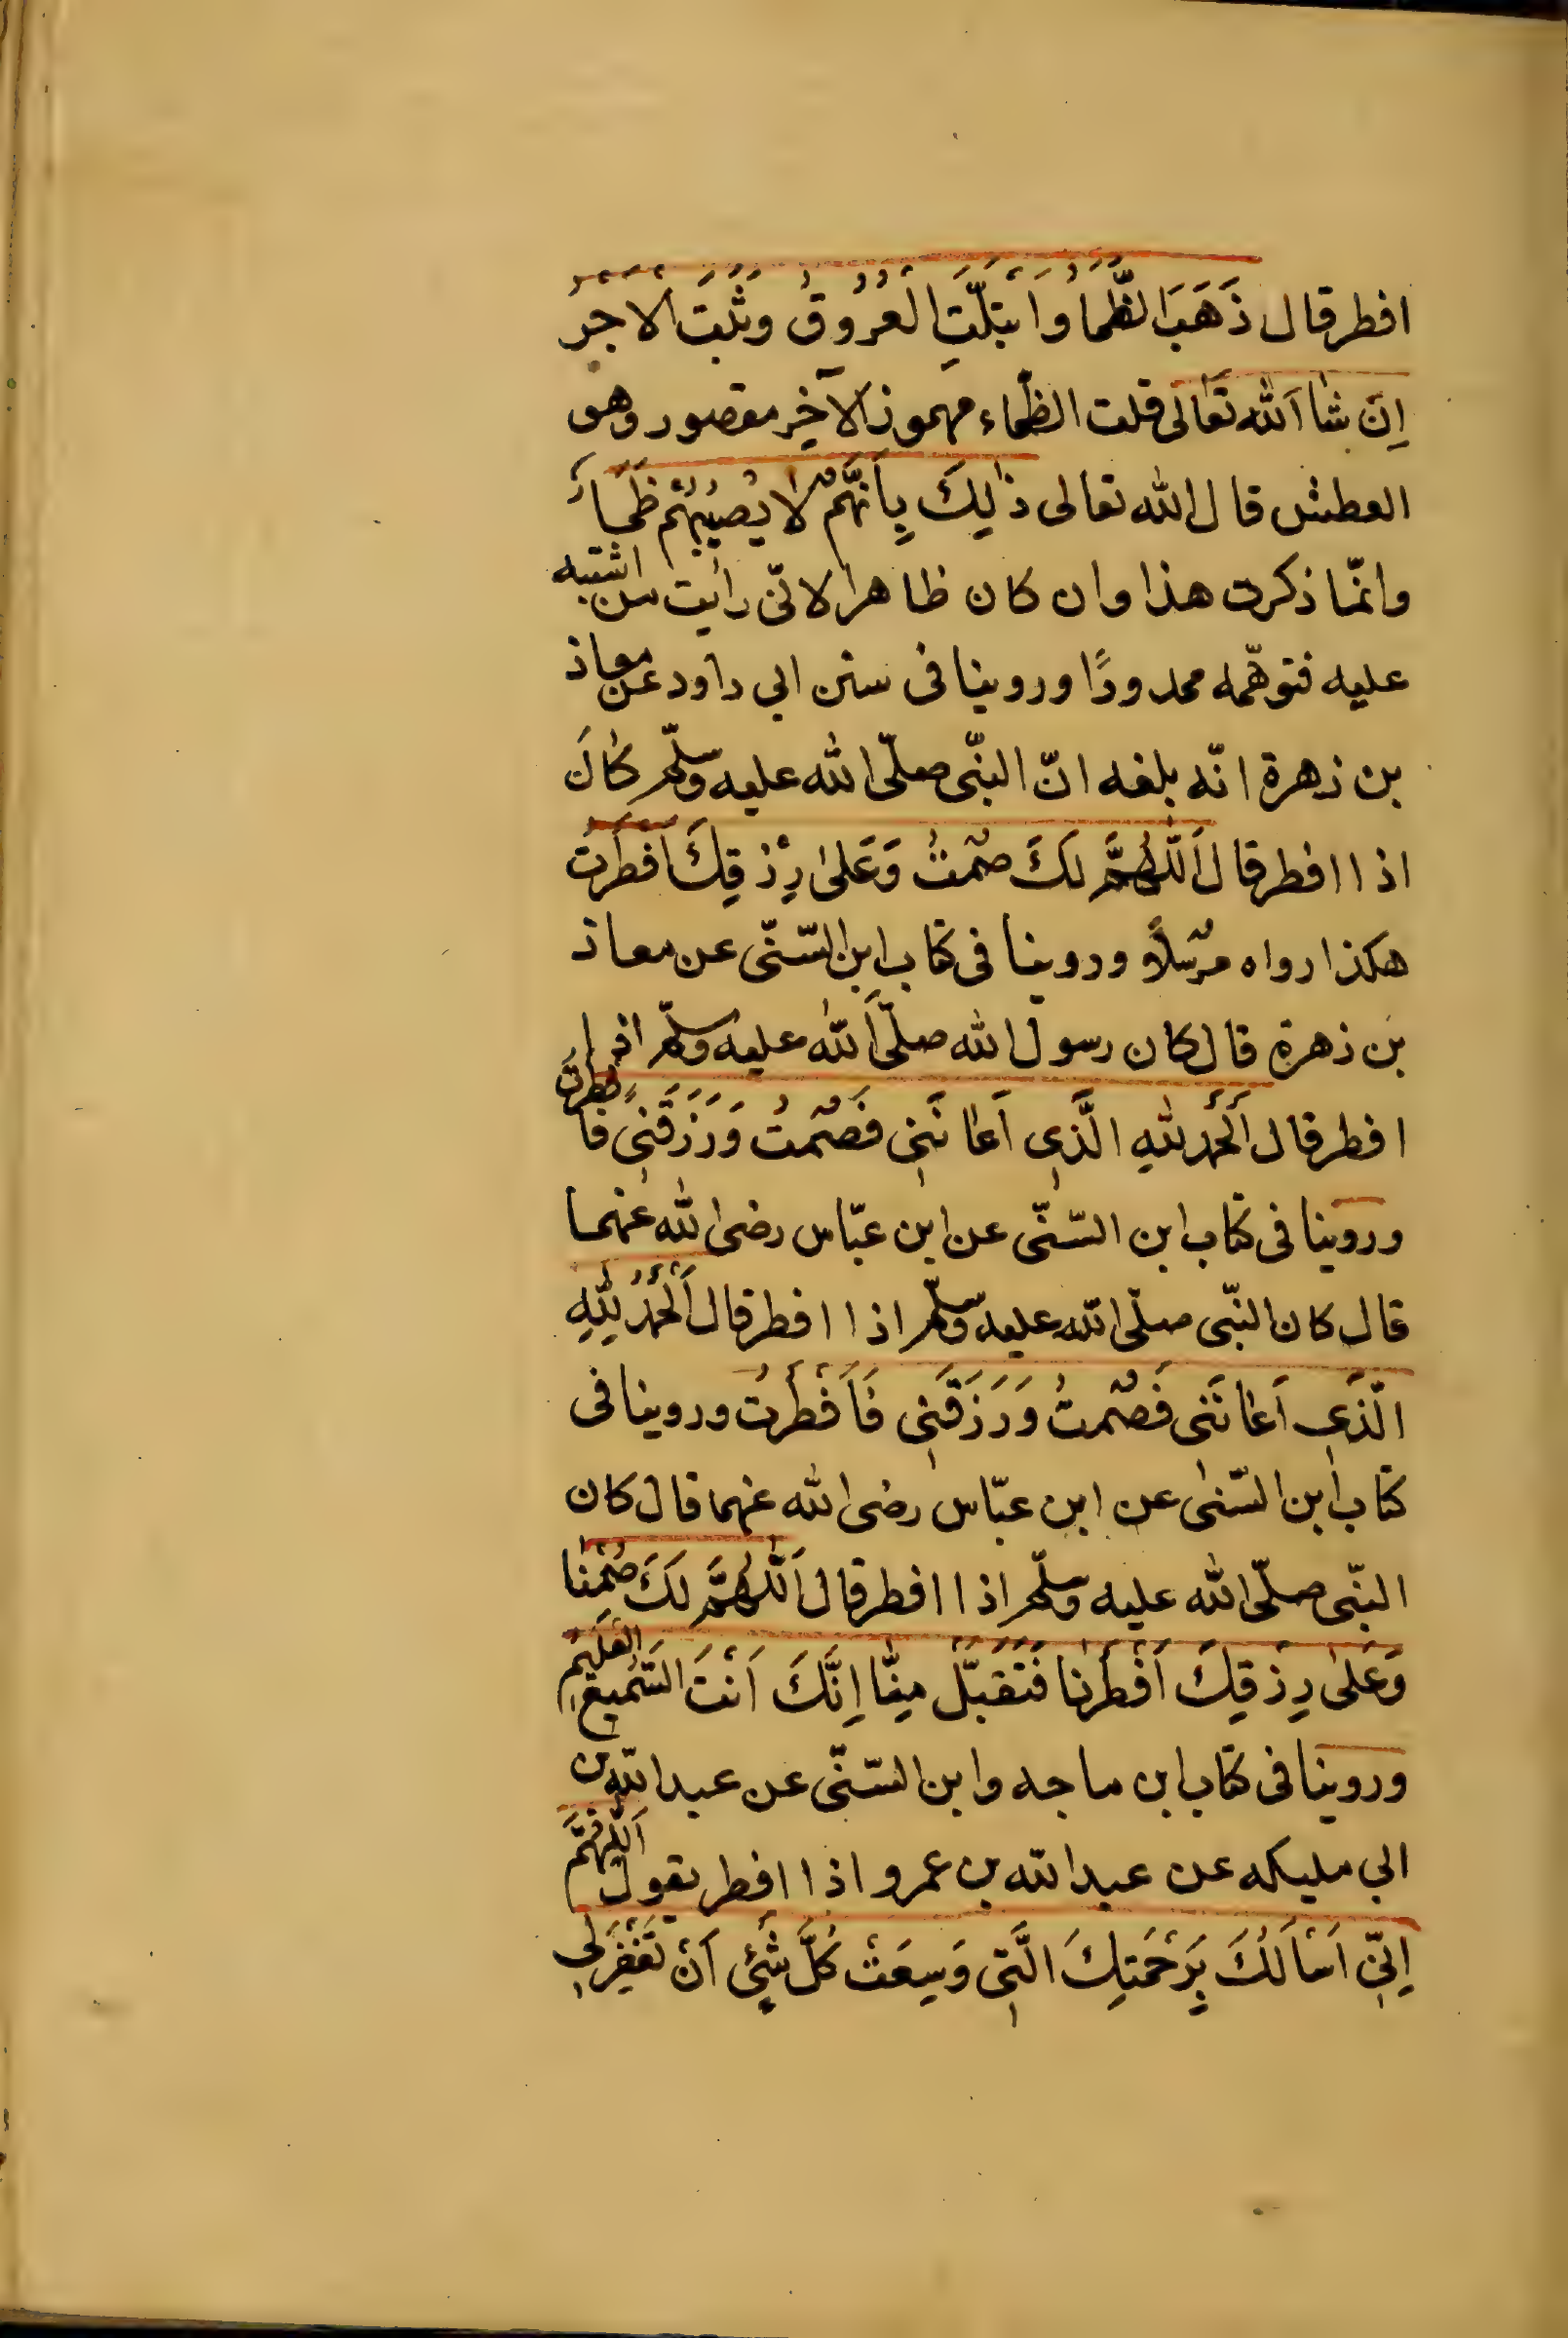 افطر قال ذَهَبَ الظَّمَأُ وَابْتَلَّتِ الْعُرُوقُ وَثَبَتَ الْاَجْرُ
اِنْ شَا اَللّٰه تَعَالٰى قلت الظماء مهموز الآخِر مقصور وهو
العطش قال الله تعالى ذٰلِكَ بِاَنَّهُمْ لَا يُصِيبُهُمْ ظَمَأٌ
وانّما ذكرت هذا وان كان ظاهرا لانّى رايت من اشتبه
عليه فتوهّمه ممدودًا وروينا فى سنن ابي داود عن معاذ
بن زهرة انّه بلغه انّ النبّى صلّى الله عليه وسلّم كَانَ
اذا افطر قال اَللّٰهُمَّ لَكَ صُمْتُ وَعَلٰى رِزْقِكَ اَفْطَرْتُ
هكذا رواه مُرْسَلًا وروينا فى كتاب ابن السّنّى عن معاذ
بن زهرة قال كان رسول الله صلّى اَللّٰه عليه وسلّم اذا
افطر قال اَلْحَمْدُ لِلّٰهِ الَّذِى اَعَانَنِى فَصُمْتُ وَرَزَقَنِى فَاَفْطَرْتُ
وروينا فى كتاب ابن السّنّى عن ابن عبّاس رضى الله عنهما
قال كان النبّى صلّى الله عليه وسلّم اذا افطر قال اَلْحَمْدُ لِلّٰهِ
الَّذِى اَعَانَنِى فَصُمْتُ وَرَزَقَنِى فَاَفْطَرْتُ وروينا فى
كتاب ابن السّنى عن ابن عبّاس رضى الله عنهما قال كان
النبّى صلّى الله عليه وسلّم اذا افطر قال اَللّٰهُمَّ لَكَ صُمْنَا
وَعَلٰى رِزْقِكَ اَفْطَرْنَا فَتَقَبَّلْ مِنَّا اِنَّكَ اَنْتَ السَّمِيعُ الْعَلِيمُ
وروينا فى كتاب ابن ماجه وابن السّنّى عن عبد الله بن
ابي مليكه عن عبد الله بن عمرو اذا افطر يقول اَللّٰهُمَّ
اِنِّى اَسْاَلُكَ بِرَحْمَتِكَ الَّتِى وَسِعَتْ كُلَّ شَىْءٍ اَنْ تَغْفِرَ لِى